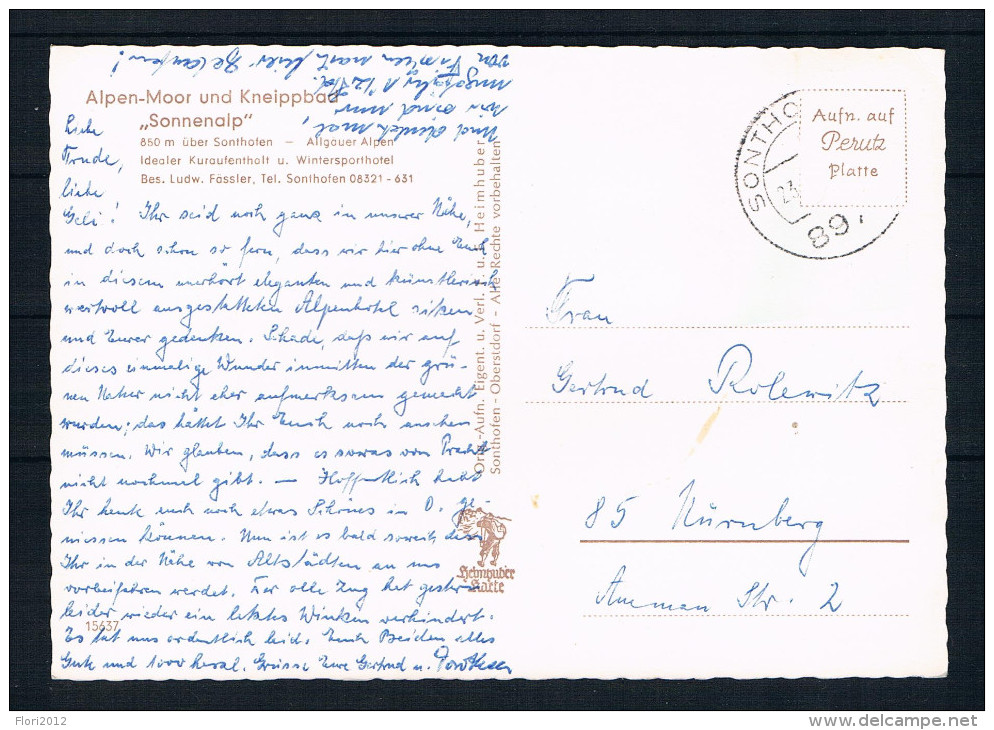 Alpen-Moor und Kneippbad
„Sonnenalp"
850 m über Sonthofen – Allgäuer Alpen
Idealer Kuraufenthalt u. Wintersporthotel
Bes. Ludw. Fässler, Tel. Sonthofen 08321 - 631
Liebe
Trude,
liebe
Geli! Ihr seid noch ganz in unserer Nähe,
und doch schon so fern, dass wir hier ohne Euch
in diesem unerhört eleganten und künstlerisch
wertvoll ausgestatteten Alpenhotel sitzen
und Eurer gedenken. Schade, daß wir auf
dieses einmalige Wunder inmitten der grü-
nen Natur nicht eher aufmerksam gemacht
wurden; das hättet Ihr Euch noch ansehen
müssen. Wir glauben, dass es sowas von Pracht
nicht nochmal gibt. — Hoffentlich habt
Ihr heute noch etwas Schönes in O. ge-
niessen können. Nun ist es bald soweit, dass
Ihr in der Nähe von Altstädten an uns
vorbeifahren werdet. Der olle Zug hat gestern
leider wieder ein letztes Winken verhindert.
Es tat uns ordentlich leid. Euch Beiden alles
Gute und 1000 herzl. Grüsse Eure Gertrud u. Dorothea
Und denkt mal,
wir sind nur
ungefähr 1 1/2 Std.
von Fischen nach hier gelaufen!
Orig.-Aufn. Eigent. u. Verl. u. H. Heimhuber
Sonthofen - Oberstdorf - Alle Rechte vorbehalten
Heimhuber
Karte
15637
SONTHO
23.
89
Aufn. auf
Perutz
Platte
Frau
Gertrud Rolewitz
85 Nürnberg
Str. 2
Flori2012
www.delcampe.net